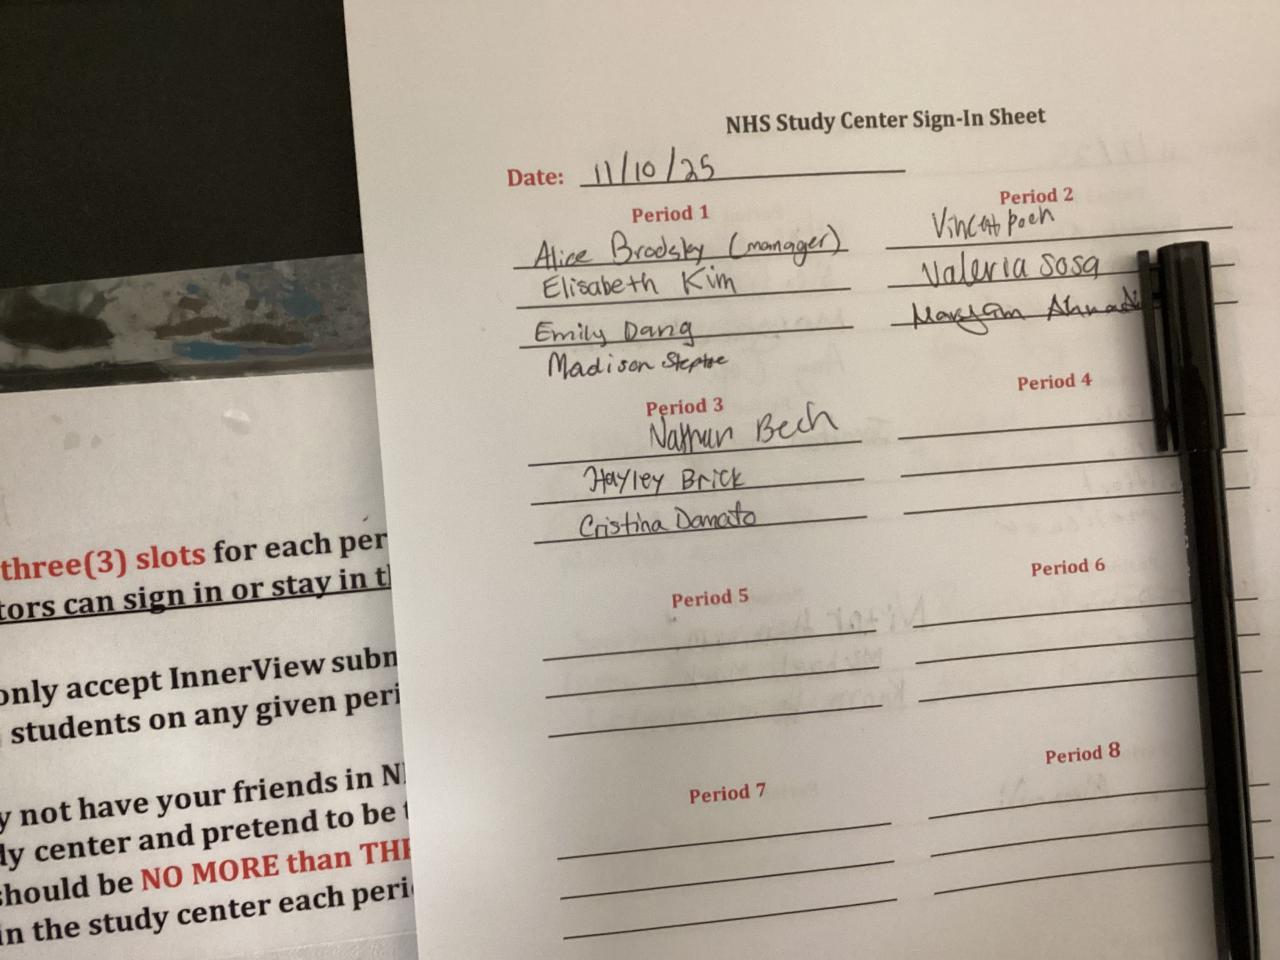 NHS Study Center Sign-In Sheet
Date: 11/10/25
Period 1
Alice Brodsky (manager)
Elisabeth Kim
Emily Dang
Madison Steptoe
Period 2
Vincent
Valeria Sosa
Maryam
Period 3
Nathan Bech
Hayley Brick
Cristina Damato
Period 4
Period 5
Period 6
Period 7
Period 8
three(3) slots for each per
tors can sign in or stay in t
only accept InnerView subm
students on any given peri
y not have your friends in N
dy center and pretend to be
should be NO MORE than THR
in the study center each peri